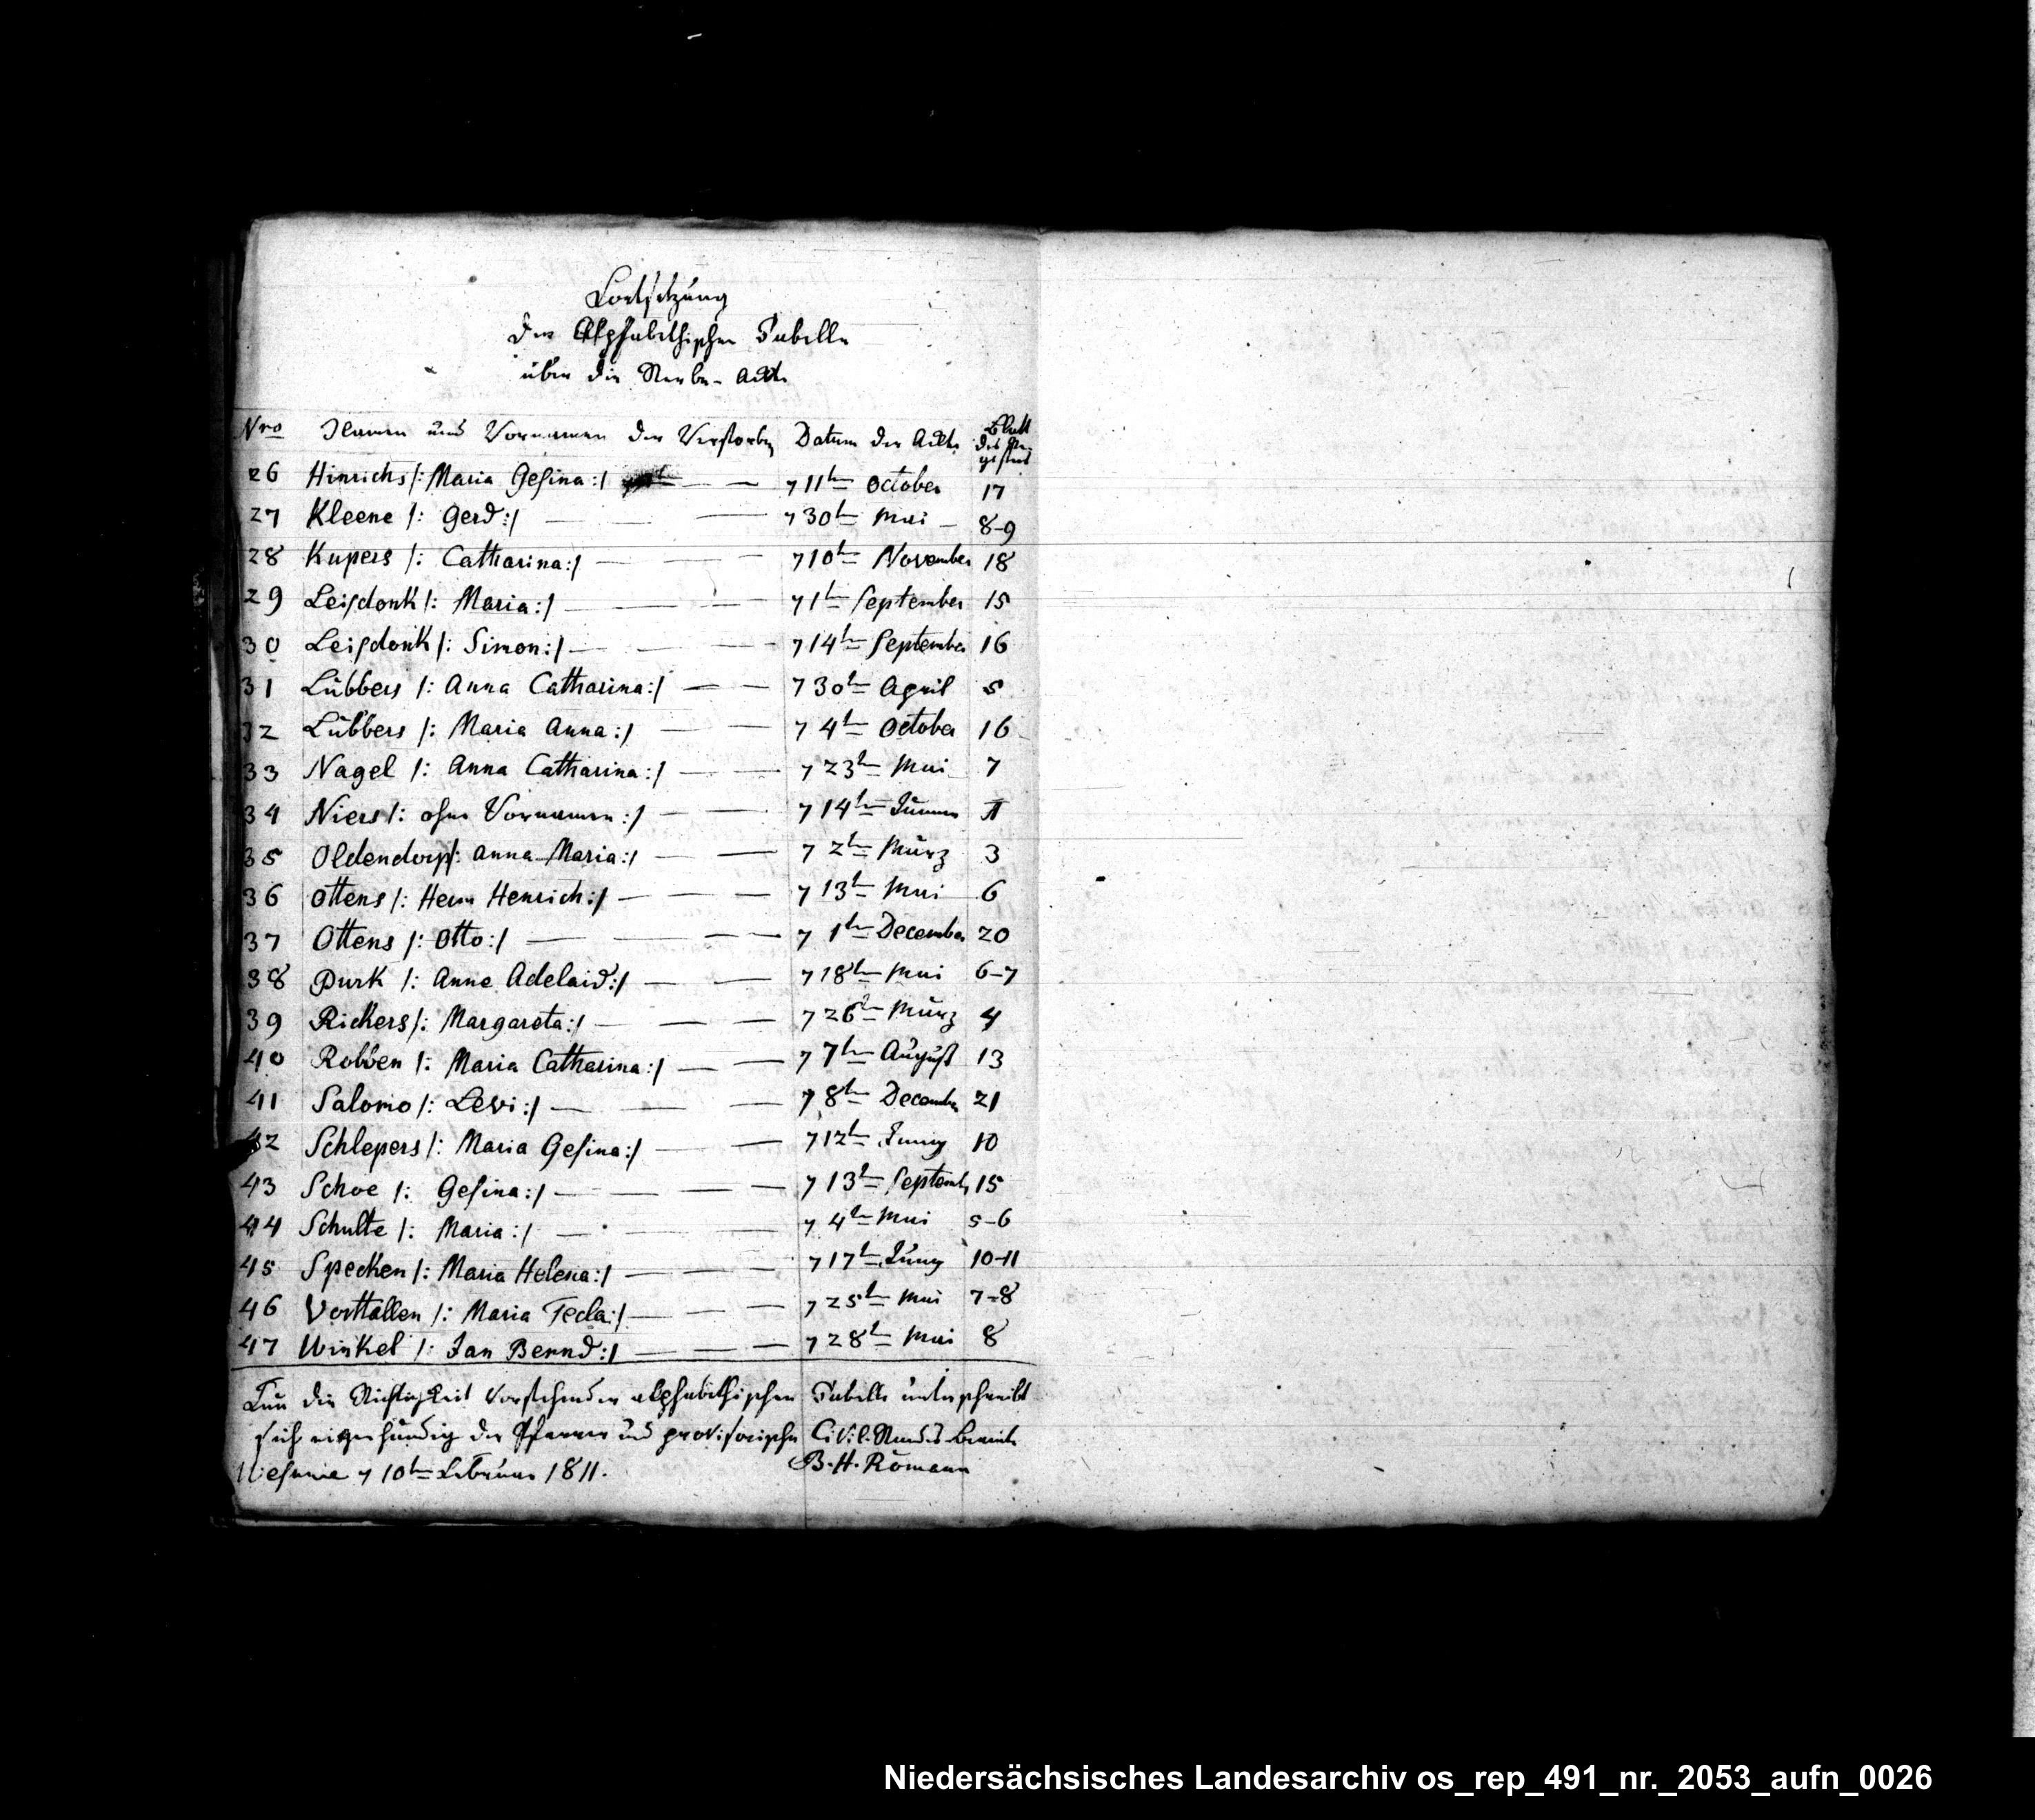 Fortsetzung
der Alphabethischen Tabelle
über die Sterbe-Ackte
Nro Namen und Vornamen der Verstorben Datum der Ackte Blatt des Registers
26 Hinrichs /: Maria Gesina :/ 11t October 17
27 Kleene /: Gerd :/ 30t Mai 8-9
28 Kupers /: Catharina :/ 10t November 18
29 Leisdonk /: Maria :/ 1t September 15
30 Leisdonk /: Simon :/ 14t September 16
31 Lübbers /: Anna Catharina :/ 30t April 5
32 Lübbers /: Maria Anna :/ 4t October 16
33 Nagel /: Anna Catharina :/ 23t Mai 7
34 Niers /: ohne Vornamen :/ 14t Januar
35 Oldendorp /: Anna Maria :/ 2t März 3
36 Ottens /: Herm Henrich :/ 13t Mai 6
37 Ottens /: Otto :/ 1t December 20
38 Purk /: Anne Adelaid :/ 18t Mai 6-7
39 Rickers /: Margareta :/ 26t März 4
40 Robben /: Maria Catharina :/ 7t August 13
41 Salomo /: Levi :/ 8t December 21
42 Schlepers /: Maria Gesina :/ 12t Juny 10
43 Schoe /: Gesina :/ 13t Septemb 15
44 Schulte /: Maria :/ 4t Mai 5-6
45 Specken /: Maria Helena :/ 17t Juny 10-11
46 Vorttallen /: Maria Tecla :/ 25t Mai 7-8
47 Winkel /: Jan Bernd :/ 28t Mai 8
Für die Richtigkeit vorstehender alphabethischen Tabelle unterschreibt
sich eigenhändig der Pfarrer und provisorische Civil-Stands-Beamte
Wesuwe 10t Februar 1811. B. H. Römann
Niedersächsisches Landesarchiv os_rep_491_nr._2053_aufn_0026